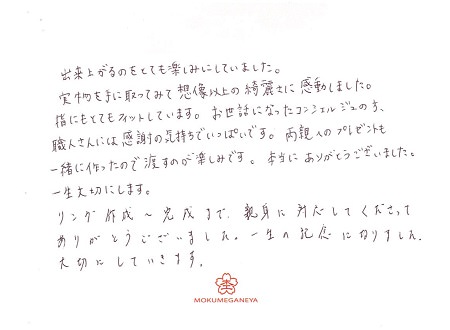 出来上がるのをとても楽しみにしていました。
実物を手に取ってみて想像以上の綺麗さに感動しました。
指にもとてもフィットしています。お世話になったコンシェルジュの方、
職人さんには感謝の気持ちでいっぱいです。両親へのプレゼントも
一緒に作ったので渡すのが楽しみです。本当にありがとうございました。
一生大切にします。
リング作成〜完成まで、親身に対応してくださって
ありがとうございました。一生の記念になりました。
大切にしていきます。
MOKUMEGANEYA